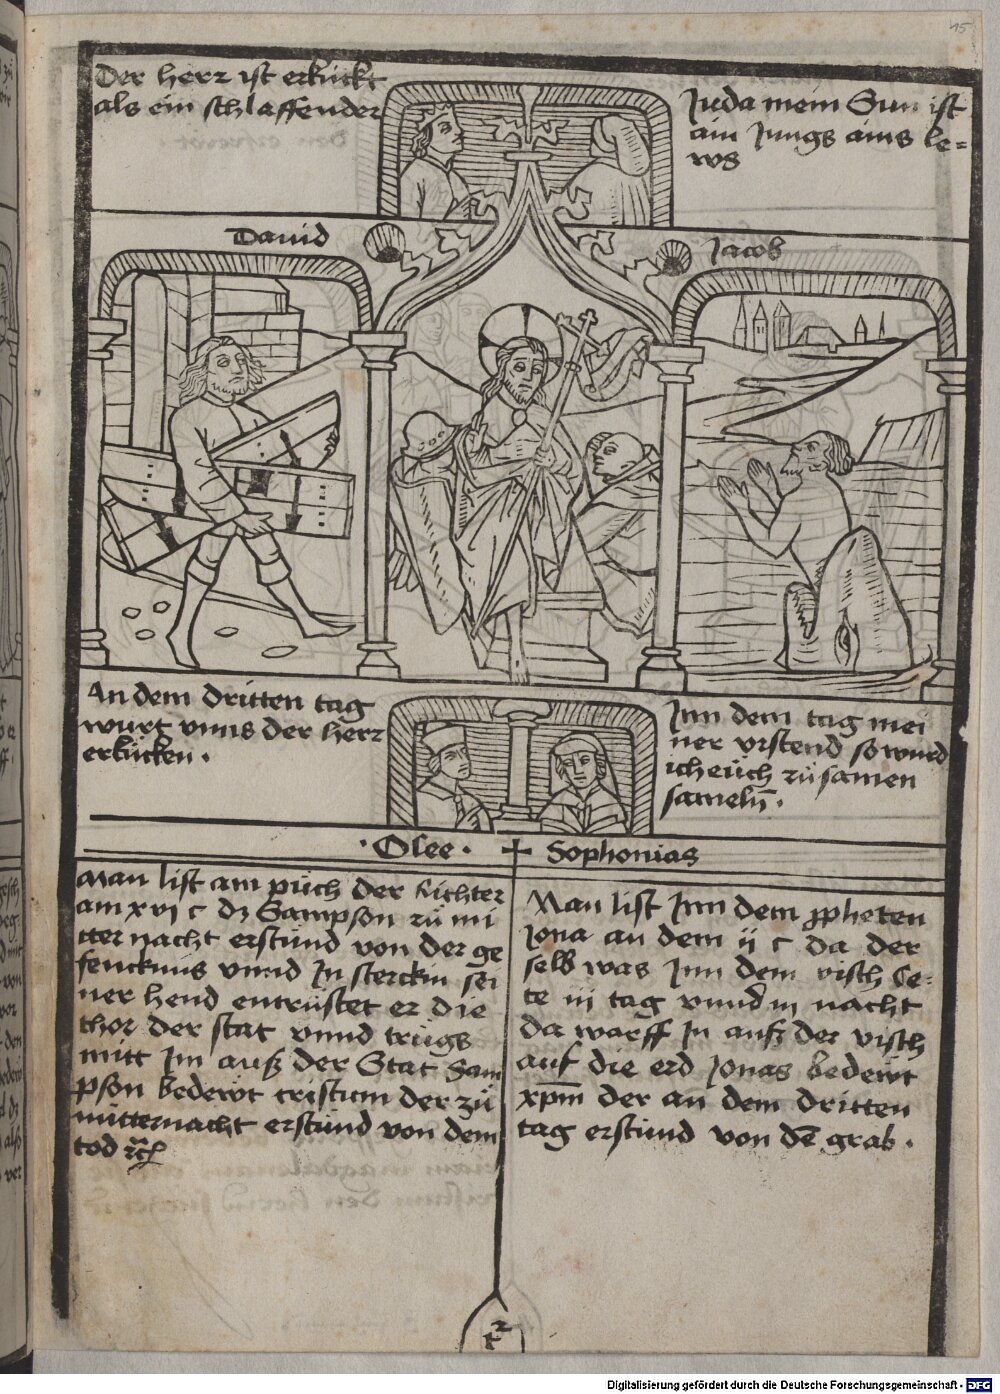 15
Der herr ist erkückt
als ein schlaffender
Juda mein Sun ist
ain Jungs ains le=
ws
Dauid
Jacob
An dem dritten tag
wurt vnns der herr
erkücken .
Jnn dem tag mei
ner vrstend so wurd
ich eüch zü samen
samelñ .
· Olee ·
Sophonias
Man list am püch der Richter
am xvj c dz Sampson zü mi
tter nacht erstünd von der ge
fencknüs vnnd Jn sterckin sei
ner hend entrüstet er die
thor der stat vnnd trügs
mitt Jm auß der Stat Sam
pson bedewt cristum der zü
mitternacht erstünd von dem
tod
Man list Jnn dem ppheten
Jona an dem ij c da der
selb was Jnn dem visch le=
te iij tag vnnd iij nacht
da warff Jn auß der visch
auf die erd Jonas bedewt
xpm der an dem dritten
tag erstünd von dē grab .
Digitalisierung gefördert durch die Deutsche Forschungsgemeinschaft - DFG